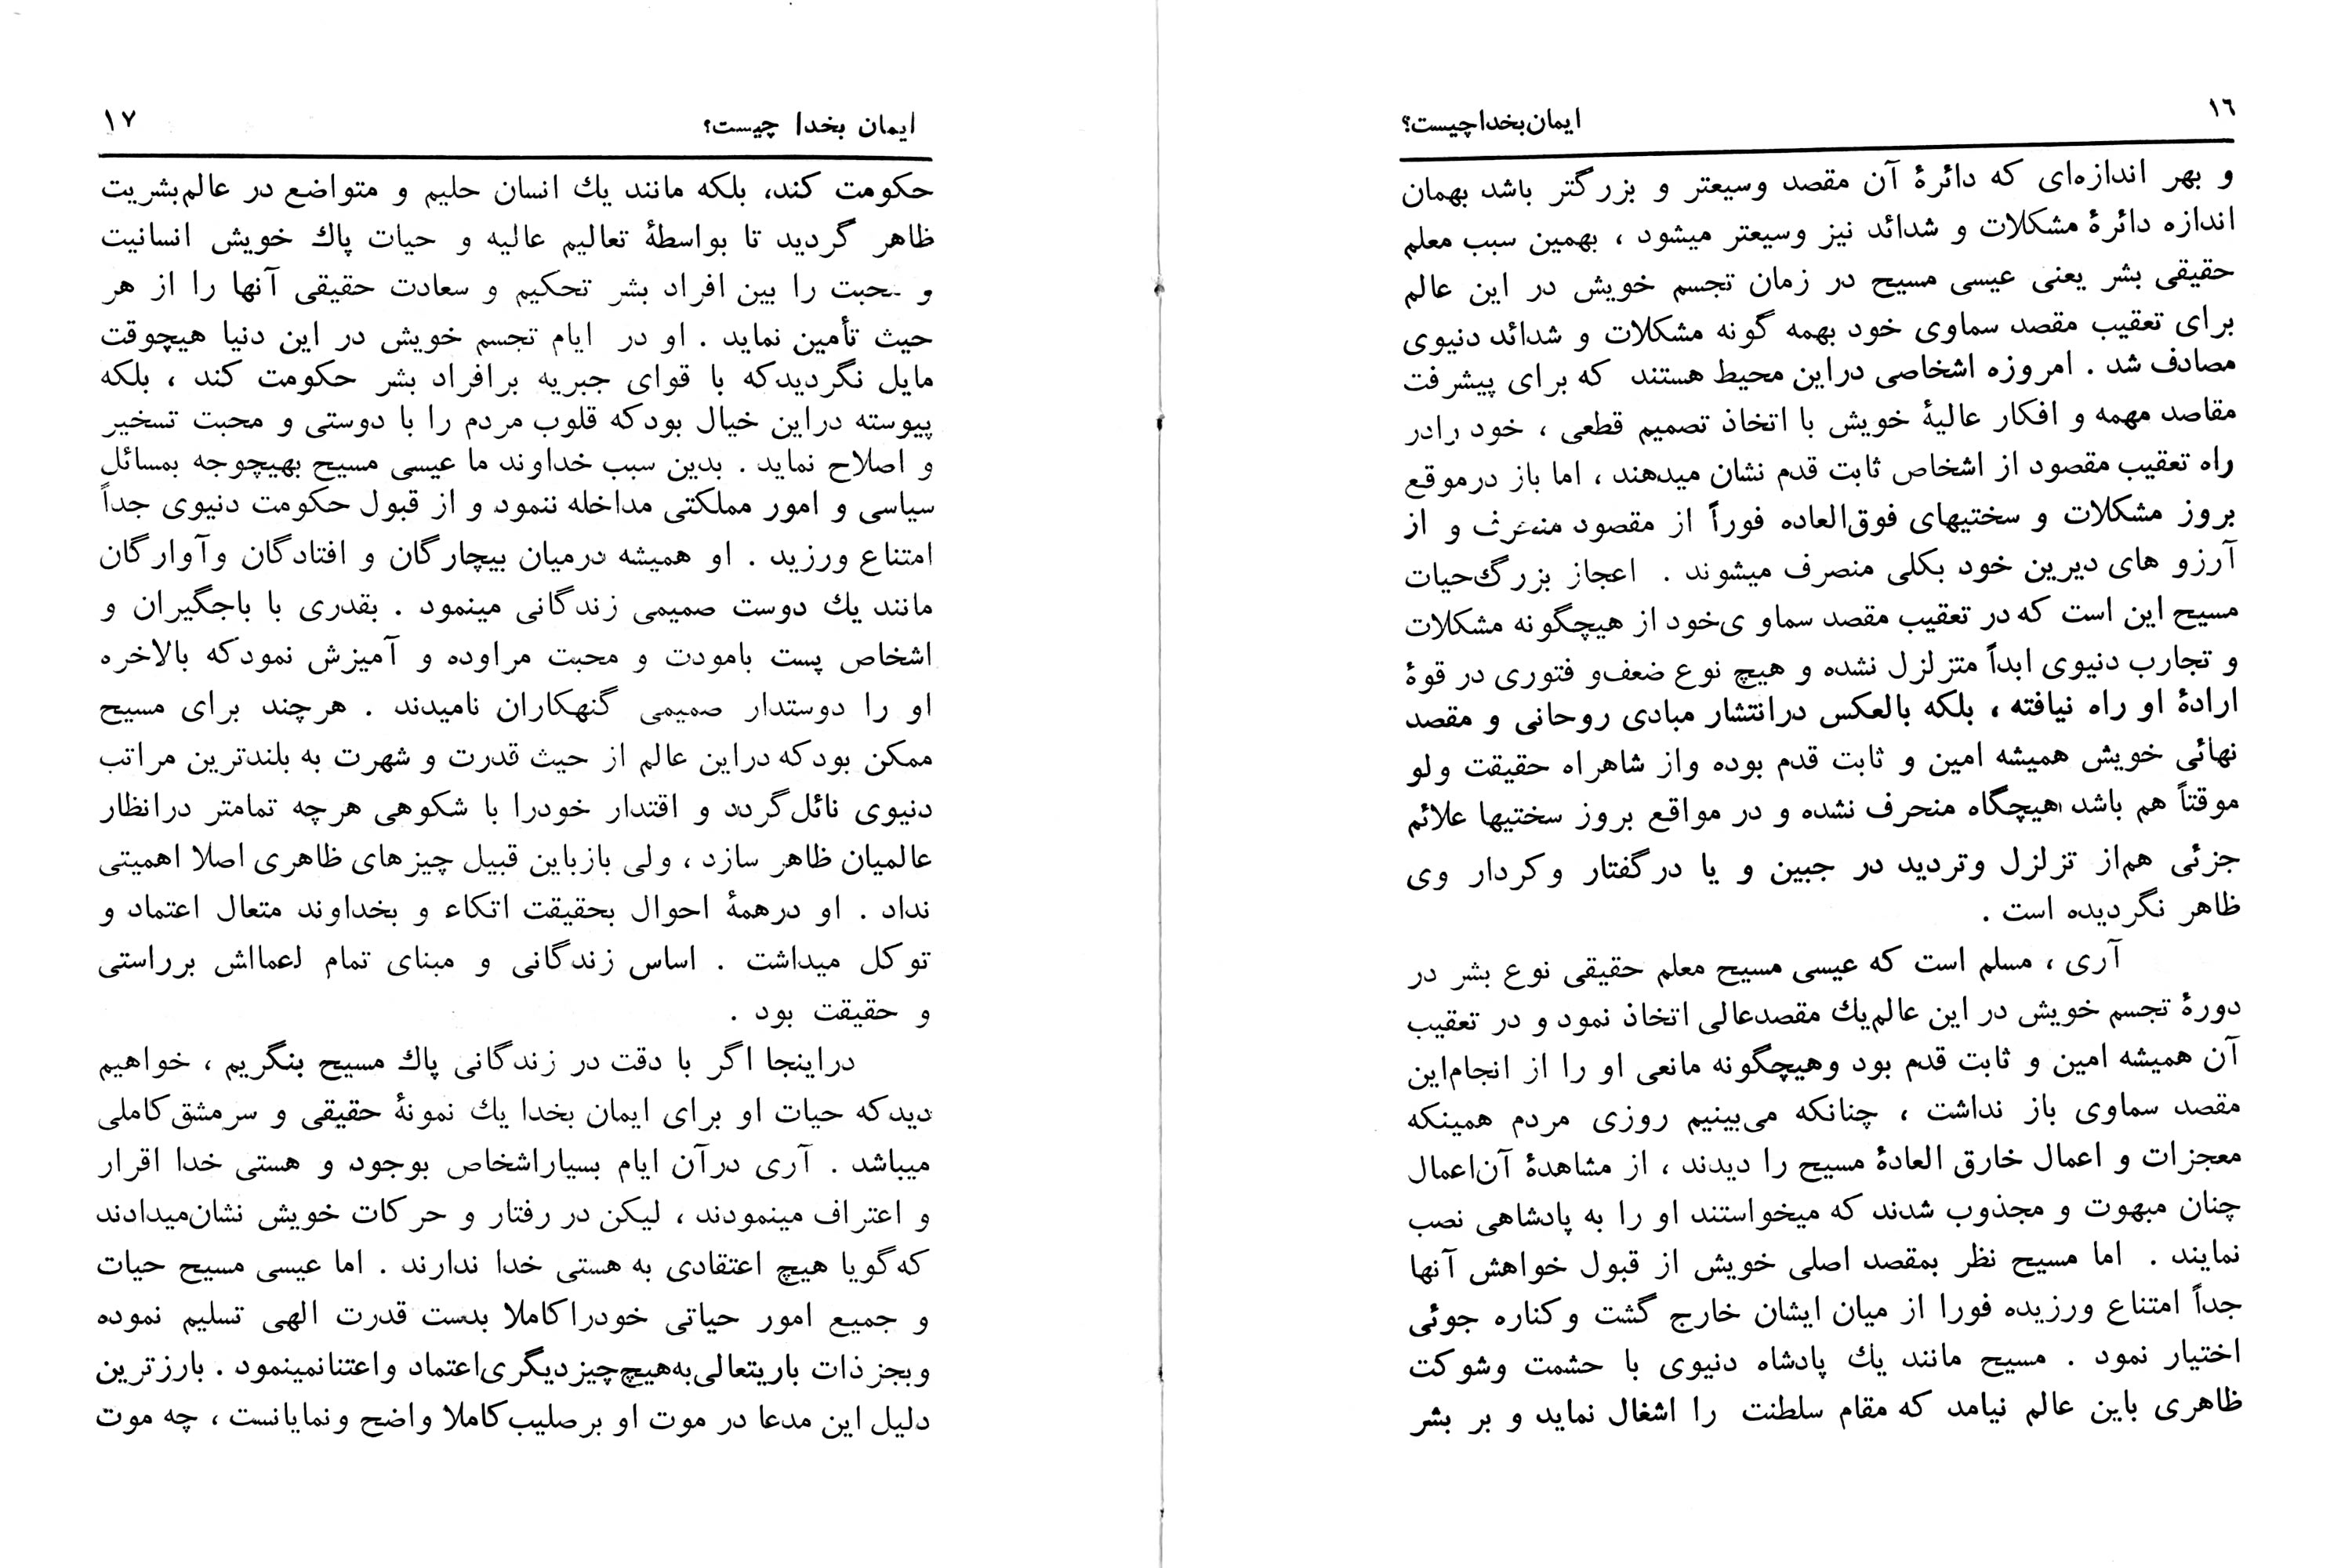 ۱٦
ایمان بخدا چیست؟
و بهر اندازه‌ای که دائرهٔ آن مقصد وسیعتر و بزرگتر باشد بهمان
اندازه دائرهٔ مشکلات و شدائد نیز وسیعتر میشود ، بهمین سبب معلم
حقیقی بشر یعنی عیسی مسیح در زمان تجسم خویش در این عالم
برای تعقیب مقصد سماوی خود بهمه گونه مشکلات و شدائد دنیوی
مصادف شد . امروزه اشخاصی دراین محیط هستند که برای پیشرفت
مقاصد مهمه و افکار عالیهٔ خویش با اتخاذ تصمیم قطعی ، خود رادر
راه تعقیب مقصود از اشخاص ثابت قدم نشان میدهند ، اما باز درموقع
بروز مشکلات و سختیهای فوق‌العاده فوراً از مقصود منحرف و از
آرزو های دیرین خود بکلی منصرف میشوند . اعجاز بزرگ‌حیات
مسیح این است که در تعقیب مقصد سماو ی‌خود از هیچگونه مشکلات
و تجارب دنیوی ابداً متزلزل نشده و هیچ نوع ضعف‌و فتوری در قوهٔ
ارادهٔ او راه نیافته ، بلکه بالعکس درانتشار مبادی روحانی و مقصد
نهائی خویش همیشه امین و ثابت قدم بوده واز شاهراه حقیقت ولو
موقتاً هم باشد هیچگاه منحرف نشده و در مواقع بروز سختیها علائم
جزئی هم‌از تزلزل وتردید در جبین و یا درگفتار وکردار وی
ظاهر نگردیده است .
آری ، مسلم است که عیسی مسیح معلم حقیقی نوع بشر در
دورهٔ تجسم خویش در این عالم‌یك مقصدعالی اتخاذ نمود و در تعقیب
آن همیشه امین و ثابت قدم بود وهیچگونه مانعی او را از انجام‌این
مقصد سماوی باز نداشت ، چنانکه می‌بینیم روزی مردم همینکه
معجزات و اعمال خارق العادهٔ مسیح را دیدند ، از مشاهدهٔ آن‌اعمال
چنان مبهوت و مجذوب شدند که میخواستند او را به پادشاهی نصب
نمایند . اما مسیح نظر بمقصد اصلی خویش از قبول خواهش آنها
جداً امتناع ورزیده فورا از میان ایشان خارج گشت وکناره جوئی
اختیار نمود . مسیح مانند یك پادشاه دنیوی با حشمت وشوکت
ظاهری باین عالم نیامد که مقام سلطنت را اشغال نماید و بر بشر
۱۷
ایمان بخدا چیست؟
حکومت کند، بلکه مانند یك انسان حلیم و متواضع در عالم‌بشریت
ظاهر گردید تا بواسطهٔ تعالیم عالیه و حیات پاك خویش انسانیت
و محبت را بین افراد بشر تحکیم و سعادت حقیقی آنها را از هر
حیث تأمین نماید . او در ایام تجسم خویش در این دنیا هیچوقت
مایل نگردیدکه با قوای جبریه برافراد بشر حکومت کند ، بلکه
پیوسته دراین خیال بودکه قلوب مردم را با دوستی و محبت تسخیر
و اصلاح نماید . بدین سبب خداوند ما عیسی مسیح بهیچوجه بمسائل
سیاسی و امور مملکتی مداخله ننمود و از قبول حکومت دنیوی جداً
امتناع ورزید . او همیشه درمیان بیچارگان و افتادگان وآوارگان
مانند یك دوست صمیمی زندگانی مینمود . بقدری با باجگیران و
اشخاص پست بامودت و محبت مراوده و آمیزش نمودکه بالاخره
او را دوستدار صمیمی گنهکاران نامیدند . هرچند برای مسیح
ممکن بودکه دراین عالم از حیث قدرت و شهرت به بلندترین مراتب
دنیوی نائل‌گردد و اقتدار خودرا با شکوهی هرچه تمامتر درانظار
عالمیان ظاهر سازد ، ولی بازباین قبیل چیزهای ظاهری اصلا اهمیتی
نداد . او درهمهٔ احوال بحقیقت اتکاء و بخداوند متعال اعتماد و
توکل میداشت . اساس زندگانی و مبنای تمام لعمااش برراستی
و حقیقت بود .
دراینجا اگر با دقت در زندگانی پاك مسیح بنگریم ، خواهیم
دیدکه حیات او برای ایمان بخدا یك نمونهٔ حقیقی و سرمشق‌کاملی
میباشد . آری درآن ایام بسیاراشخاص بوجود و هستی خدا اقرار
و اعتراف مینمودند ، لیکن در رفتار و حرکات خویش نشان‌میدادند
که‌گویا هیچ اعتقادی به هستی خدا ندارند . اما عیسی مسیح حیات
و جمیع امور حیاتی خودراکاملا بدست قدرت الهی تسلیم نموده
وبجز ذات باریتعالی‌به‌هیچ‌چیزدیگری‌اعتماد واعتنانمینمود . بارزترین
دلیل این مدعا در موت او برصلیب‌کاملا واضح ونمایانست ، چه موت